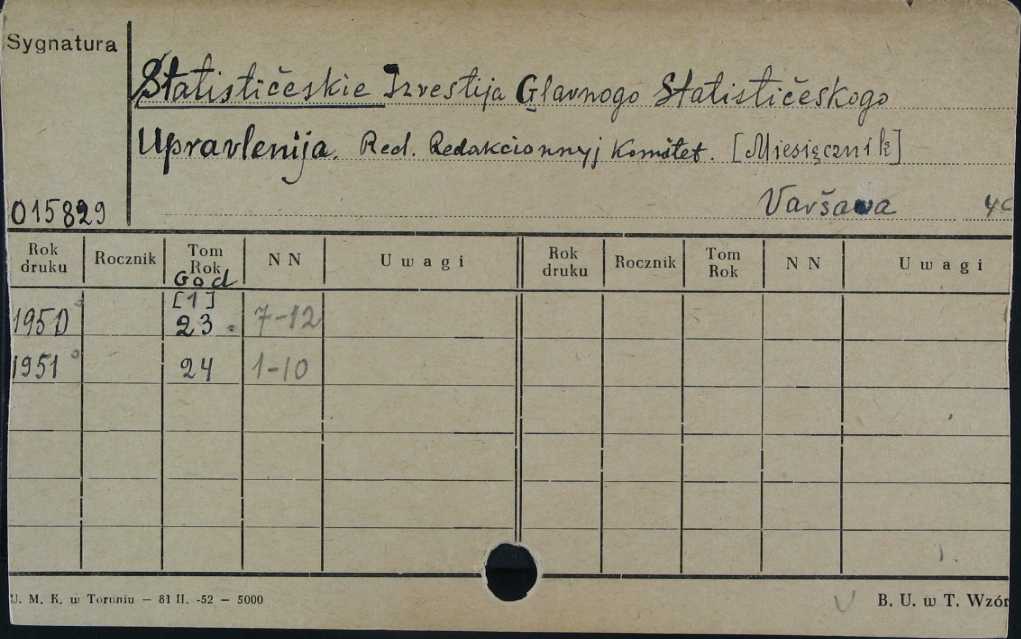 Sygnatura
Statističeskie Izvestija Glavnogo Statističeskogo
Upravlenija. Red. Redakcionnyj Komitet. [Miesięcznik]
015829
Varšava 4°
Rok druku Rocznik Tom Rok N N Uwagi Rok druku Rocznik Tom Rok N N Uwagi
God
[1]
1950 23 7-12
1951 24 1-10
U. M. K. w Toruniu — 81 II. -52 — 5000
B. U. w T. Wzór